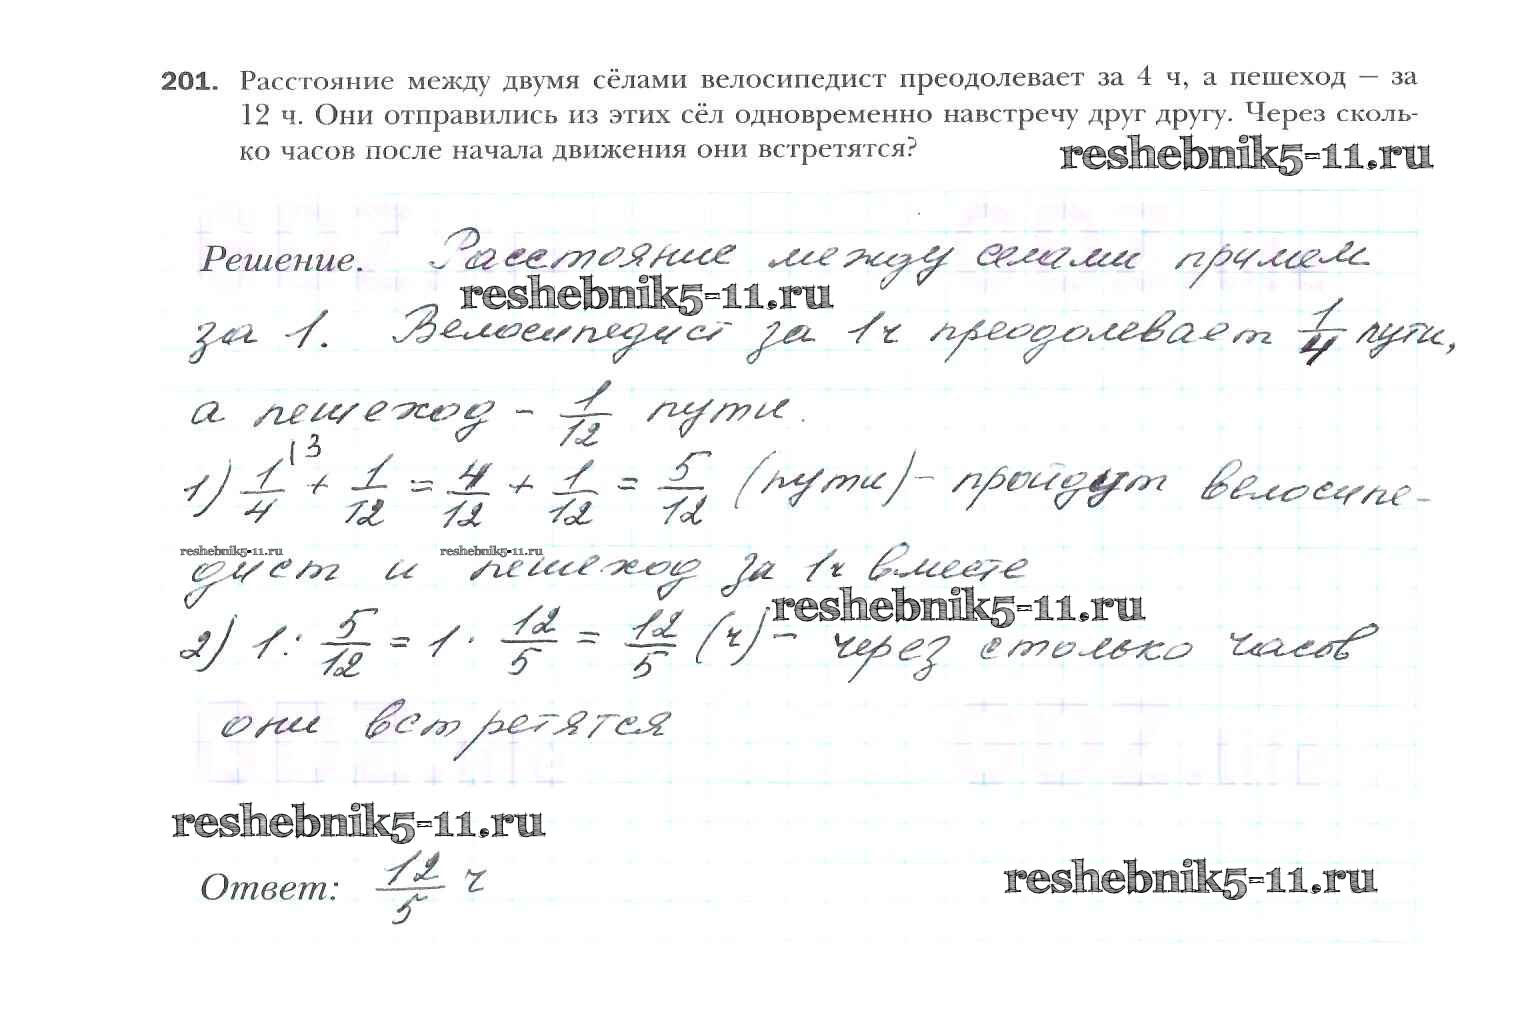 201. Расстояние между двумя сёлами велосипедист преодолевает за 4 ч, а пешеход — за
12 ч. Они отправились из этих сёл одновременно навстречу друг другу. Через сколь-
ко часов после начала движения они встретятся?
reshebnik5-11.ru
Решение. Расстояние между селами примем
reshebnik5-11.ru
за 1. Велосипедист за 1ч преодолевает 1/4 пути,
а пешеход - 1/12 пути.
1) 1/4 \3 + 1/12 = 4/12 + 1/12 = 5/12 (пути) - пройдут велосипе-
reshebnik5-11.ru reshebnik5-11.ru
дист и пешеход за 1ч вместе
reshebnik5-11.ru
2) 1 : 5/12 = 1 · 12/5 = 12/5 (ч) - через столько часов
они встретятся
reshebnik5-11.ru
Ответ: 12/5 ч
reshebnik5-11.ru